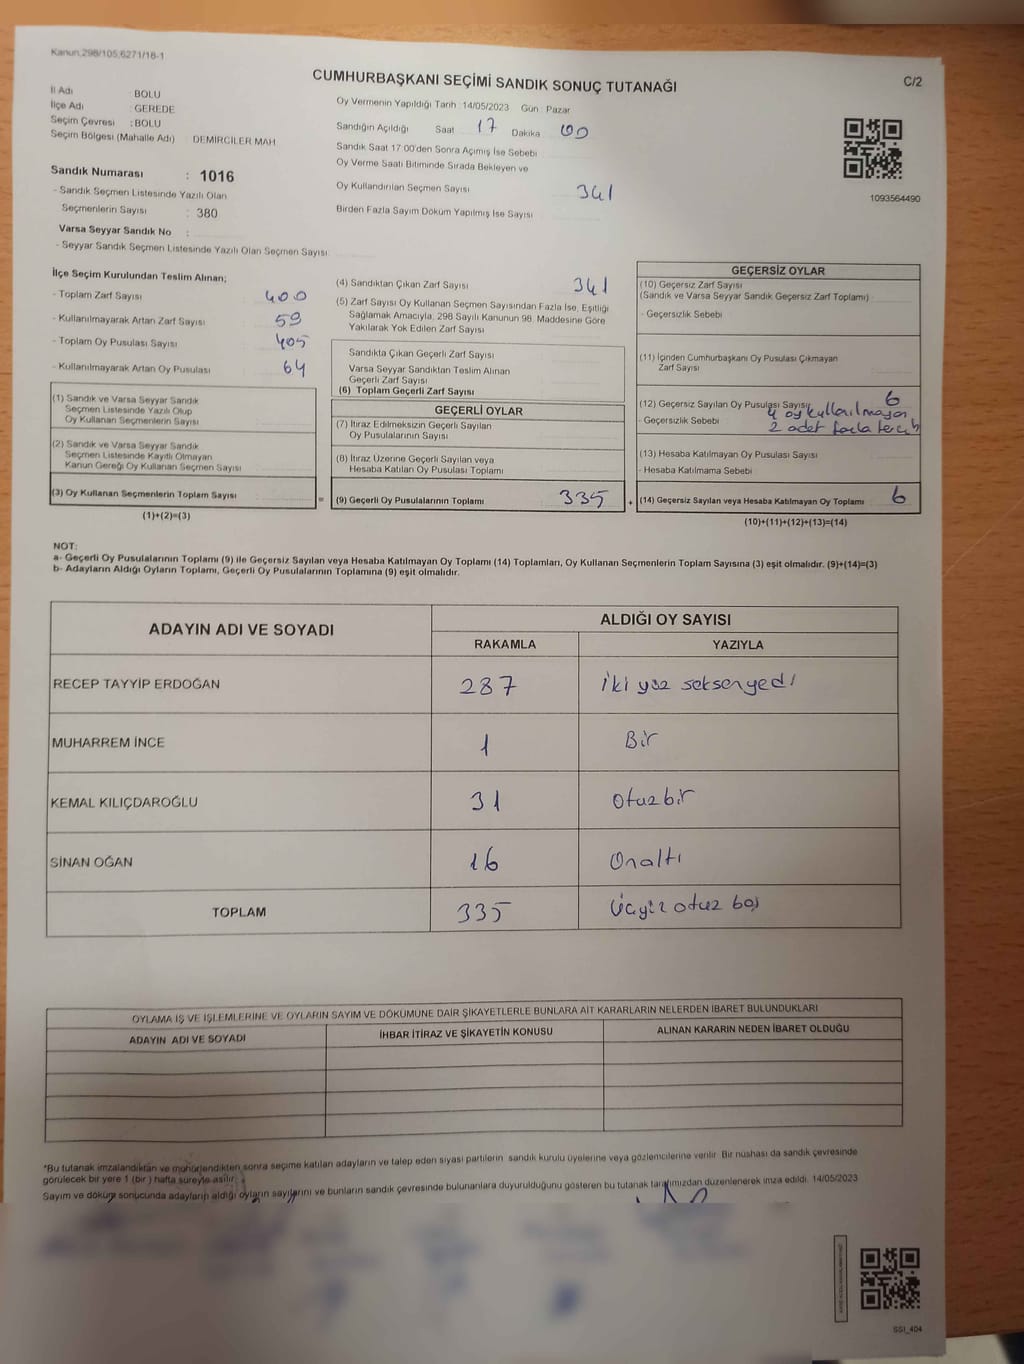 Kanun.298/105,6271/18-1
CUMHURBAŞKANI SEÇİMİ SANDIK SONUÇ TUTANAĞI
C/2
İl Adı : BOLU
İlçe Adı : GEREDE
Seçim Çevresi : BOLU
Seçim Bölgesi (Mahalle Adı) DEMİRCİLER MAH
Sandık Numarası : 1016
- Sandık Seçmen Listesinde Yazılı Olan
Seçmenlerin Sayısı : 380
Varsa Seyyar Sandık No :
- Seyyar Sandık Seçmen Listesinde Yazılı Olan Seçmen Sayısı
Oy Vermenin Yapıldığı Tarih : 14/05/2023 Gün : Pazar
Sandığın Açıldığı Saat 17 Dakika 00
Sandık Saat 17:00'den Sonra Açımış İse Sebebi
Oy Verme Saati Bitiminde Sırada Bekleyen ve
Oy Kullandırılan Seçmen Sayısı 341
Birden Fazla Sayım Döküm Yapılmış İse Sayısı
1093564490
İlçe Seçim Kurulundan Teslim Alınan;
- Toplam Zarf Sayısı 400
- Kullanılmayarak Artan Zarf Sayısı 59
- Toplam Oy Pusulası Sayısı 405
- Kullanılmayarak Artan Oy Pusulası 64
(1) Sandık ve Varsa Seyyar Sandık
Seçmen Listesinde Yazılı Olup
Oy Kullanan Seçmenlerin Sayısı
(2) Sandık ve Varsa Seyyar Sandık
Seçmen Listesinde Kayıtlı Olmayan
Kanun Gereği Oy Kullanan Seçmen Sayısı
(3) Oy Kullanan Seçmenlerin Toplam Sayısı =
(1)+(2)=(3)
(4) Sandıktan Çıkan Zarf Sayısı 341
(5) Zarf Sayısı Oy Kullanan Seçmen Sayısından Fazla İse, Eşitliği
Sağlamak Amacıyla, 298 Sayılı Kanunun 98. Maddesine Göre
Yakılarak Yok Edilen Zarf Sayısı
Sandıkta Çıkan Geçerli Zarf Sayısı
Varsa Seyyar Sandıktan Teslim Alınan
Geçerli Zarf Sayısı
(6) Toplam Geçerli Zarf Sayısı
GEÇERLİ OYLAR
(7) İtiraz Edilmeksizin Geçerli Sayılan
Oy Pusulalarının Sayısı
(8) İtiraz Üzerine Geçerli Sayılan veya
Hesaba Katılan Oy Pusulası Toplamı
(9) Geçerli Oy Pusulalarının Toplamı 335 +
GEÇERSİZ OYLAR
(10) Geçersiz Zarf Sayısı
(Sandık ve Varsa Seyyar Sandık Geçersiz Zarf Toplamı)
- Geçersizlik Sebebi
(11) İçinden Cumhurbaşkanı Oy Pusulası Çıkmayan
Zarf Sayısı
(12) Geçersiz Sayılan Oy Pusulası Sayısı 6
- Geçersizlik Sebebi 4 oy kullanılmayan
2 adet fazla tercih
(13) Hesaba Katılmayan Oy Pusulası Sayısı
- Hesaba Katılmama Sebebi
(14) Geçersiz Sayılan veya Hesaba Katılmayan Oy Toplamı 6
(10)+(11)+(12)+(13)=(14)
NOT:
a- Geçerli Oy Pusulalarının Toplamı (9) ile Geçersiz Sayılan veya Hesaba Katılmayan Oy Toplamı (14) Toplamları, Oy Kullanan Seçmenlerin Toplam Sayısına (3) eşit olmalıdır. (9)+(14)=(3)
b- Adayların Aldığı Oyların Toplamı, Geçerli Oy Pusulalarının Toplamına (9) eşit olmalıdır.
ADAYIN ADI VE SOYADI ALDIĞI OY SAYISI
RAKAMLA YAZIYLA
RECEP TAYYİP ERDOĞAN 287 İki yüz seksenyedi
MUHARREM İNCE 1 Bir
KEMAL KILIÇDAROĞLU 31 Otuzbir
SİNAN OĞAN 16 Onaltı
TOPLAM 335 Üçyüz otuz beş
OYLAMA İŞ VE İŞLEMLERİNE VE OYLARIN SAYIM VE DÖKÜMÜNE DAİR ŞİKAYETLERLE BUNLARA AİT KARARLARIN NELERDEN İBARET BULUNDUKLARI
ADAYIN ADI VE SOYADI İHBAR İTİRAZ VE ŞİKAYETİN KONUSU ALINAN KARARIN NEDEN İBARET OLDUĞU
*Bu tutanak imzalandıktan ve mühürlendikten sonra seçime katılan adayların ve talep eden siyasi partilerin sandık kurulu üyelerine veya gözlemcilerine verilir. Bir nüshası da sandık çevresinde
görülecek bir yere 1 (bir) hafta süreyle asılır.
Sayım ve döküm sonucunda adayların aldığı oyların sayılarını ve bunların sandık çevresinde bulunanlara duyurulduğunu gösteren bu tutanak tarafımızdan düzenlenerek imza edildi. 14/05/2023
SSI_404